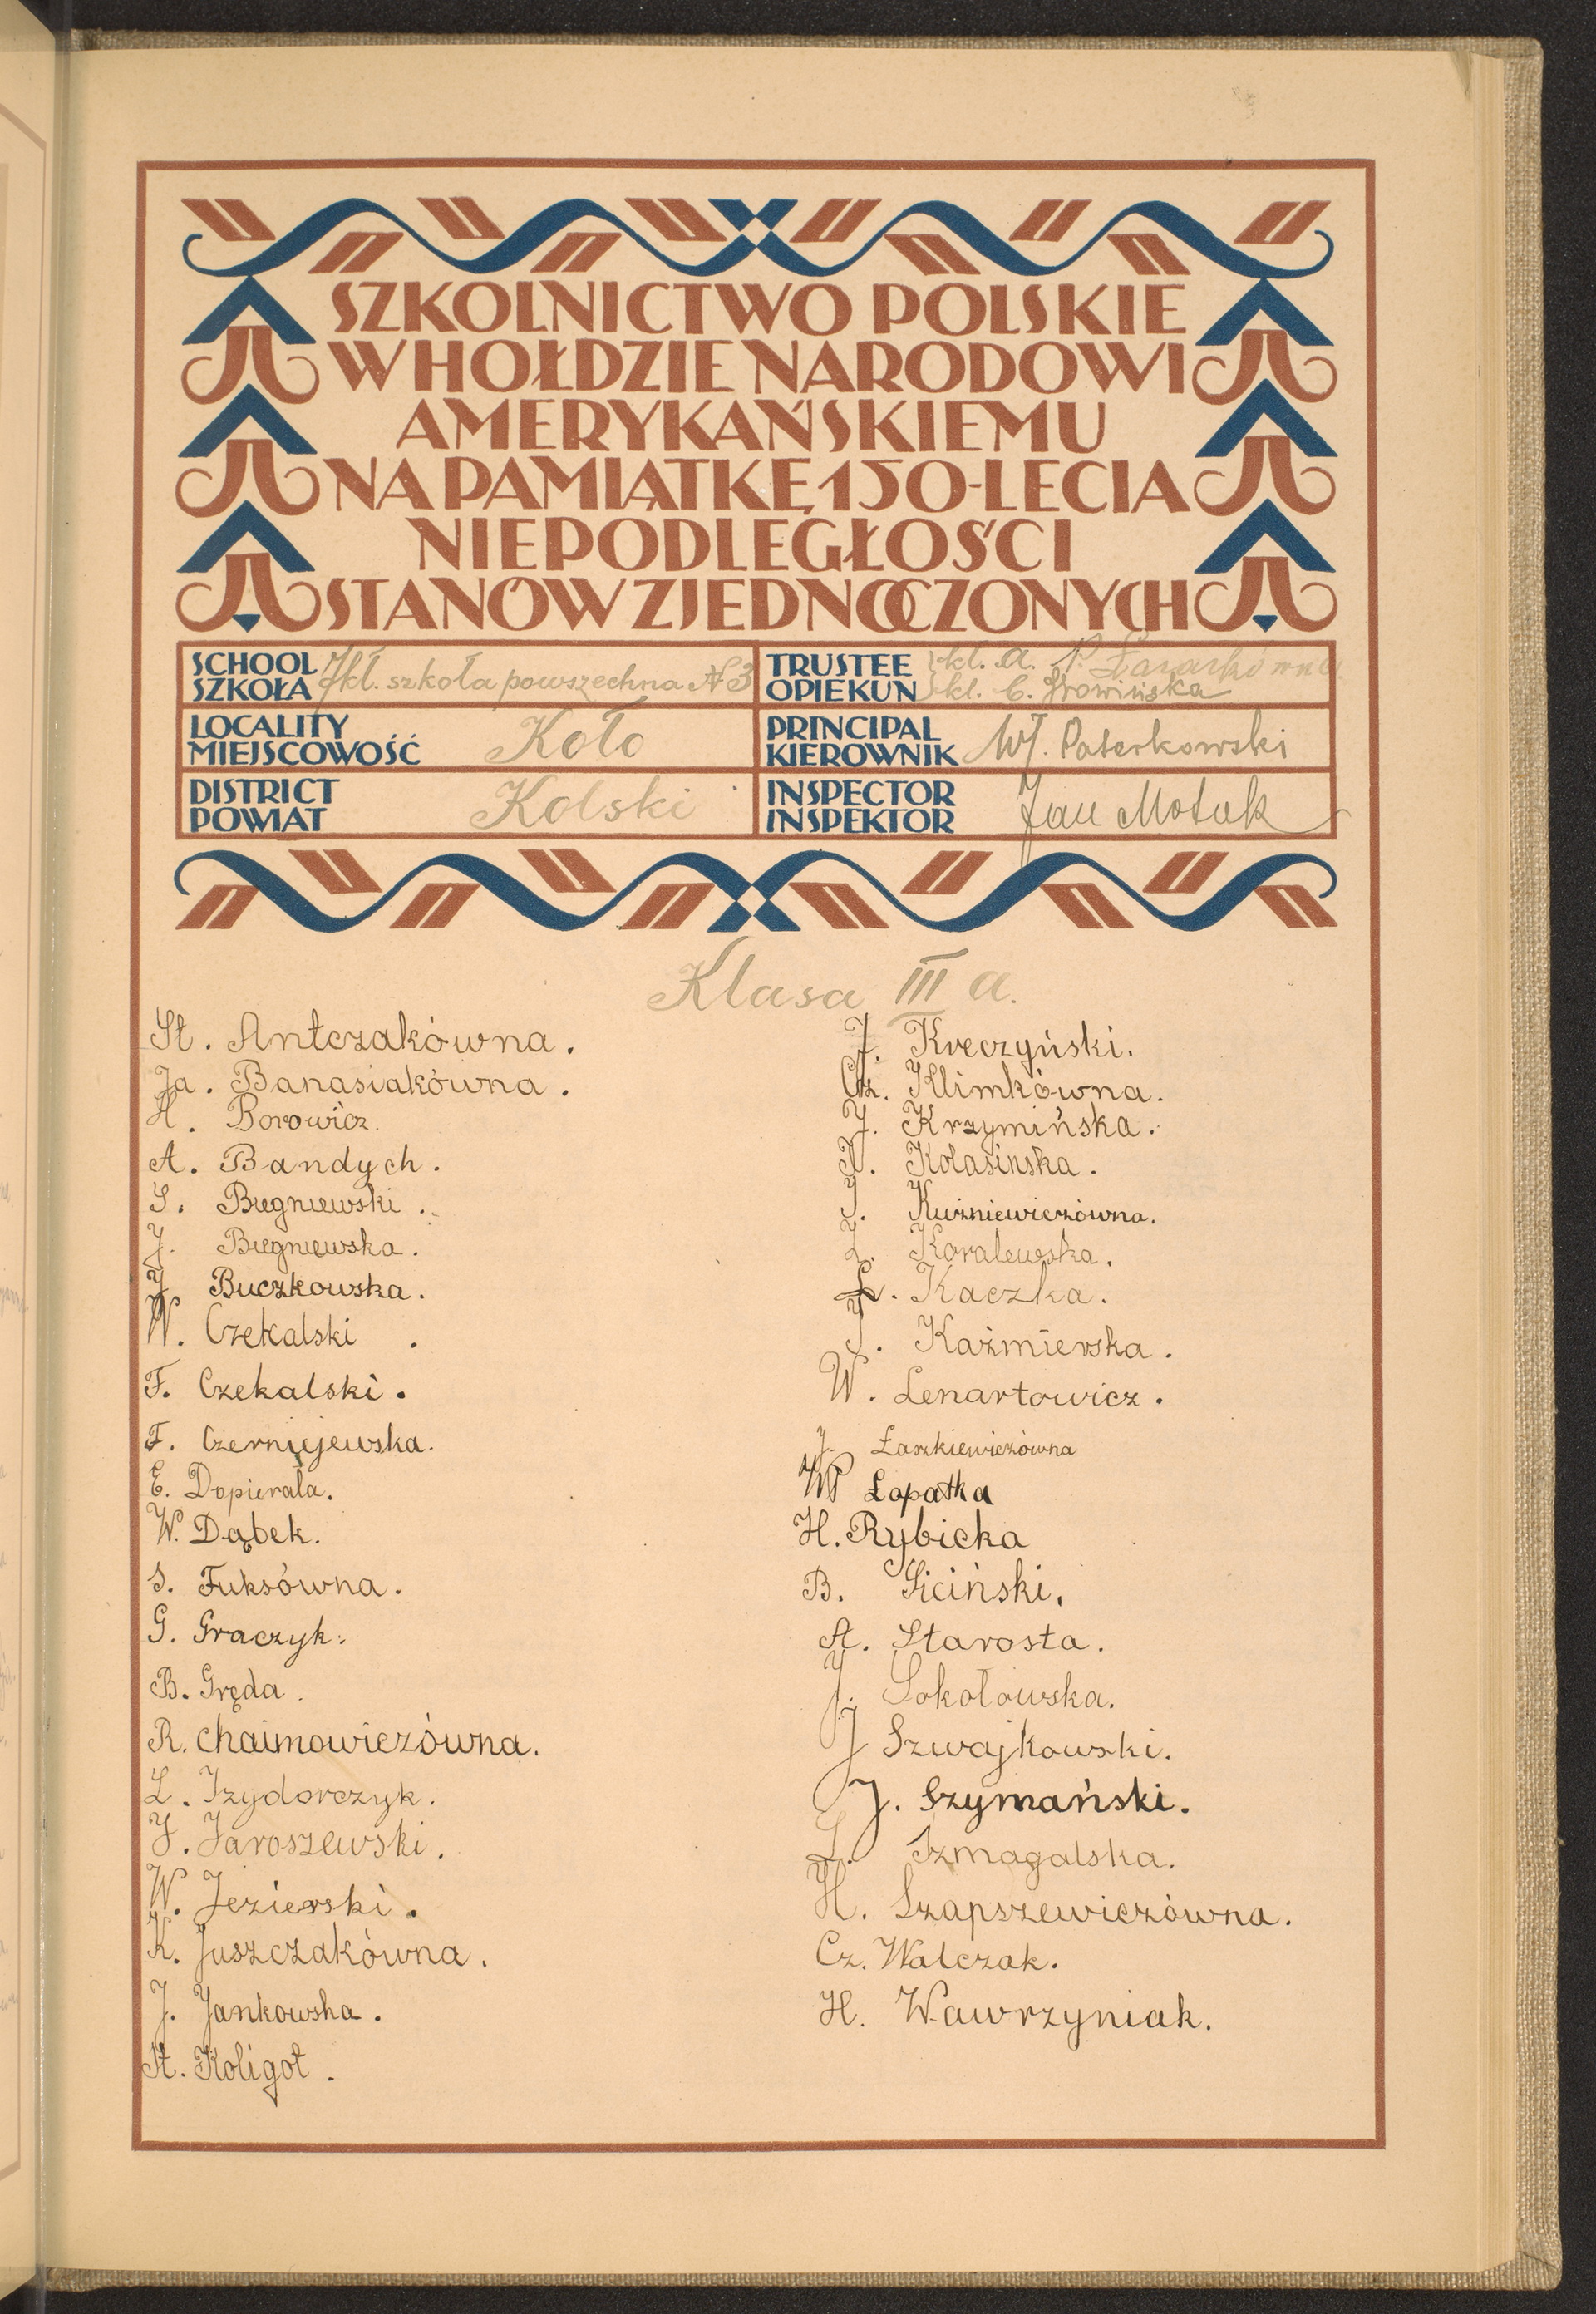 SZKOLNICTWO POLSKIE
W HOŁDZIE NARODOWI
AMERYKAŃSKIEMU
NA PAMIĄTKĘ 150-LECIA
NIEPODLEGŁOŚCI
STANÓW ZJEDNOCZONYCH
SCHOOL
SZKOŁA
7kl. szkoła powszechna № 3
TRUSTEE
OPIEKUN
kl. a. P.
kl. C.
LOCALITY
MIEJSCOWOŚĆ
Koło
PRINCIPAL
KIEROWNIK
Wł. Paterkowski
DISTRICT
POWIAT
Kolski
INSPECTOR
INSPEKTOR
Jan Motuk
Klasa III a.
St. Antczakówna.
Ja. Banasiakówna.
H. Borowicz.
A. Bandych.
S. Biegniewski.
J. Biegniewska.
J. Buczkowska.
W. Czekalski.
F. Czekalski.
F. Czerniejewska.
E. Dopierała.
W. Dąbek.
S. Fuksówna.
G. Graczyk.
B. Gręda.
R. Chaimowiczówna.
L. Izydorczyk.
J. Jaroszewski.
W. Jezierski.
K. Juszczakówna.
J. Jankowska.
St. Koligot.
J. Kreczyński.
Cz. Klimkówna.
J. Krzymińska.
Kolasinska.
J. Kuźniewiczówna.
Z. Koralewska.
Kaczka.
J. Kaźmierska.
W. Lenartowicz.
J. Łaszkiewiczówna
Wł Łopatka
H. Rybicka
B. Siciński.
A. Starosta.
J. Sokołowska.
J Szwajkowski.
J. Szymański.
Szmagalska.
H. Szapszewiczówna.
Cz. Walczak.
H. Wawrzyniak.